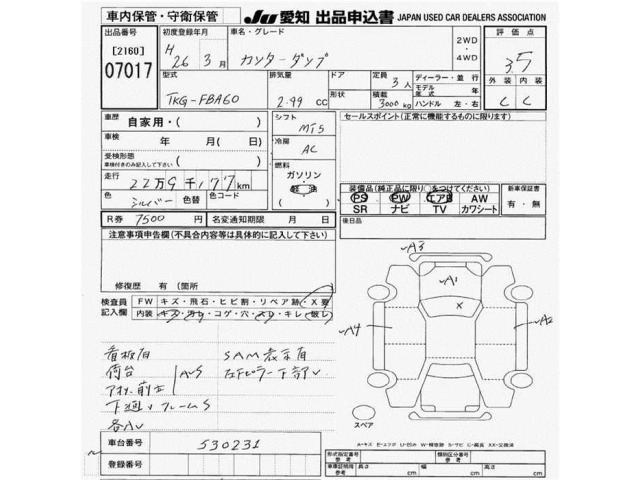 車内保管・守衛保管
JU 愛知 出品申込書 JAPAN USED CAR DEALERS ASSOCIATION
出品番号
[2160]
07017
初度登録年月
H 26年 3月
車名・グレード
カンターダンプ
2WD
・
4WD
評価点
3.5
型式
TKG-FBA60
排気量
2.99 CC
ドア
形状
定員 3人
積載 3000kg
ディーラー・並行
モデル年式 年
ハンドル 左・右
外装 内装
C C
車歴 自家用・(
車検 年 月( 日)
受検形態
車検付きのみ記入して下さい (
走行 22万9千177km
色 シルバー 色替 色コード
シフト
MT5
冷房
AC
燃料
ガソリン
軽油
セールスポイント(正常に機能するものに限ります)
装備品(純正品に限り○をつけてください)
PS PW エアB AW
SR ナビ TV カワシート
新車保証書
有・無
後日品
R券 7500円 名変通知期限 月 日
注意事項申告欄(不具合内容等は具体的に記入して下さい)
修復歴 有(箇所 )
検査員
記入欄
FW キズ・飛石・ヒビ割・リペア跡・X要
内装 キズ・汚れ・コゲ・穴・スレ・キレ(破レ)
看板有
荷台
下廻りフレームS
各小U
AUS
SAM表示有
左Fピラー下部U
A3
A1
X
A4
A2
スペア
A-キズ E-エクボ U-凹み W-補修跡 S-サビ C-腐食 XX-交換済
車台番号 530231
登録番号
形式指定番号
参考
類別区分番号
参考
車庫証明用
参考
長さ cm 幅 cm 高さ cm